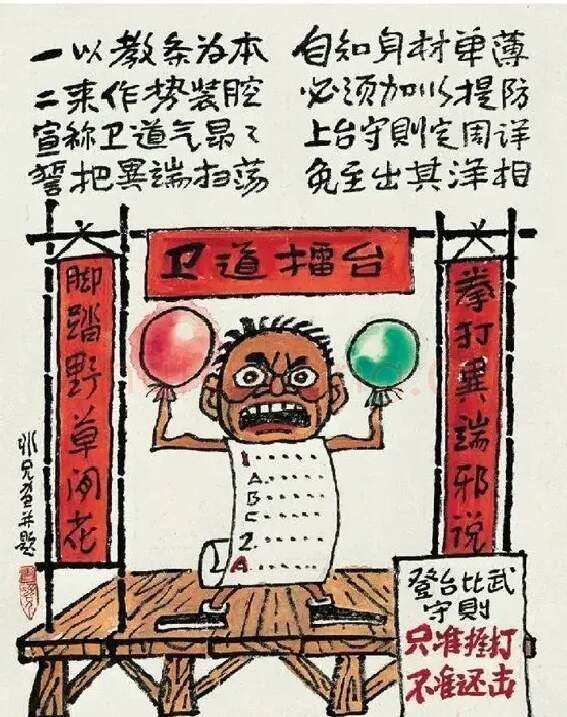 一以教条为本
二来作势装腔
宣称卫道气昂々
誓把異端扫荡
自知身材单薄
必须加以提防
上台守則定周详
免至出其洋相
卫道擂台
拳打異端邪说
脚踏野草闲花
1.
A.
B
C
2.
A.
冰兄画并题
登台比武
守則
只准捱打
不准还击